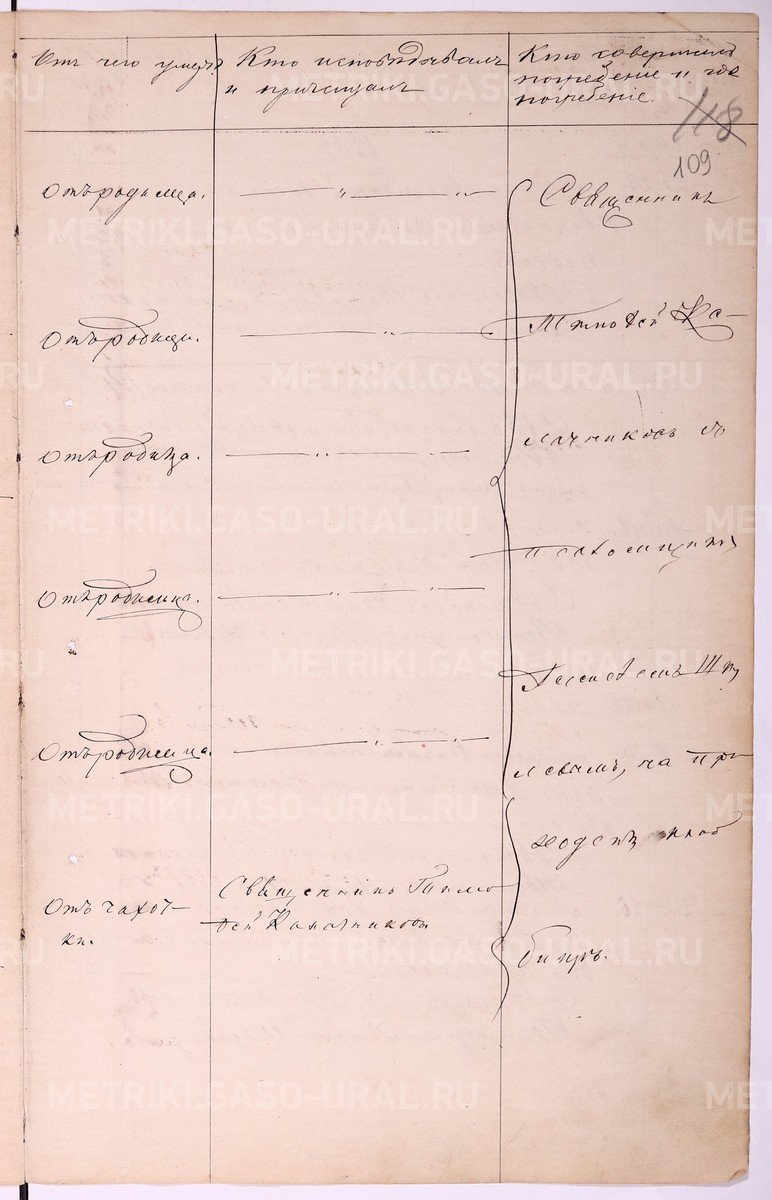 Отъ чего умеръ.
Кто исповѣдывалъ
и причащалъ
Кто совершалъ
погребеніе и гдѣ
погребенъ.
118
109
Отъ родимца.
Священникъ
Отъ родимца.
Тимофей Ка-
Отъ родимца.
лачниковъ съ
псаломщикомъ
Отъ родимца.
Отъ родимца.
на при-
ходскомъ клад-
Священникъ Тимо-
фей Калачниковъ
Отъ чахот-
ки.
бищѣ.
METRIKI.GASO-URAL.RU